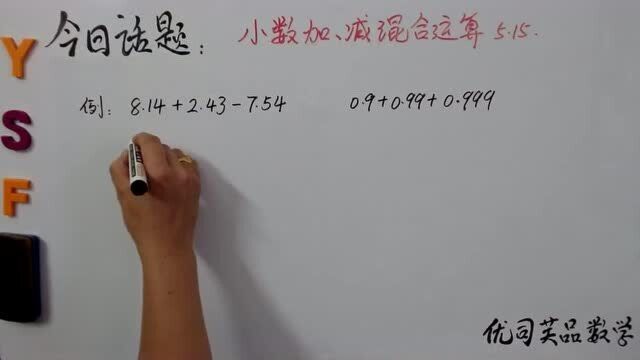 今日话题： 小数加、减混合运算 5.15.
例： 8.14+2.43-7.54 0.9+0.99+0.999
Y
S
F
优司芙品数学